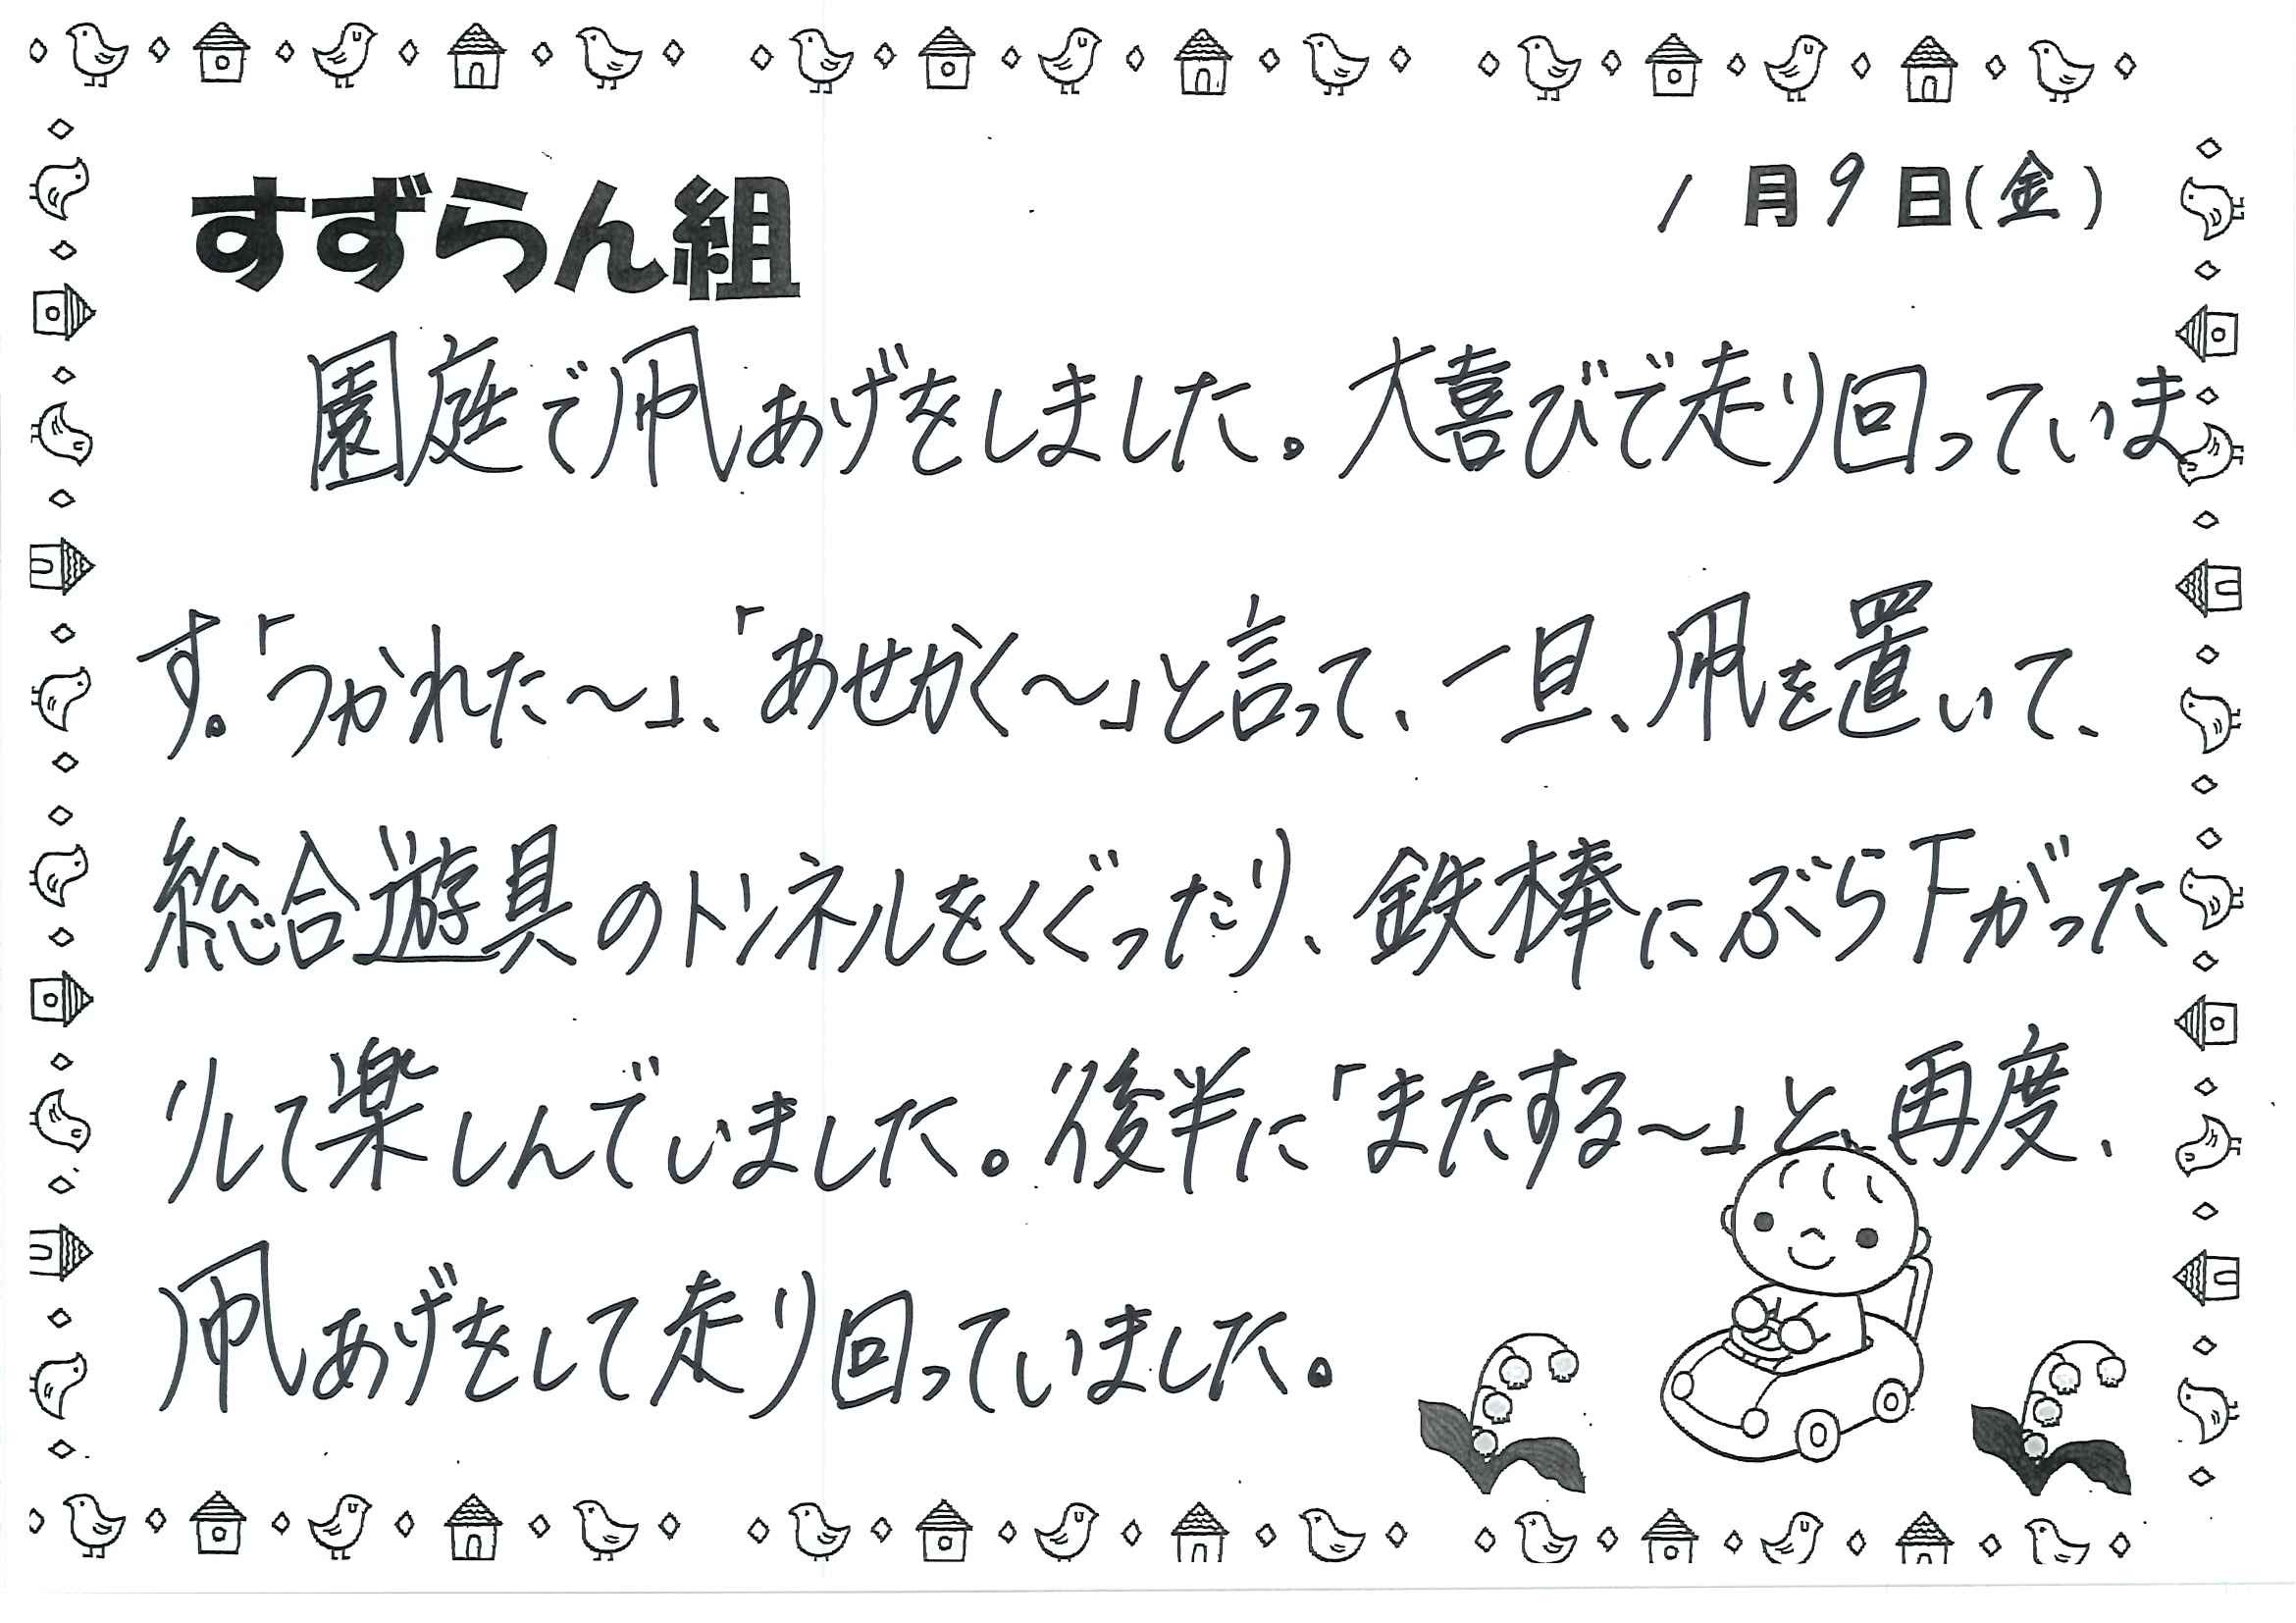 すずらん組
1月9日(金)
園庭で凧あげをしました。大喜びで走り回っていま
す。「つかれた〜」、「あせかく〜」と言って、一旦、凧を置いて、
総合遊具のトンネルをくぐったり、鉄棒にぶら下がった
りして楽しんでいました。後半に「またする〜」と、再度、
凧あげをして走り回っていました。